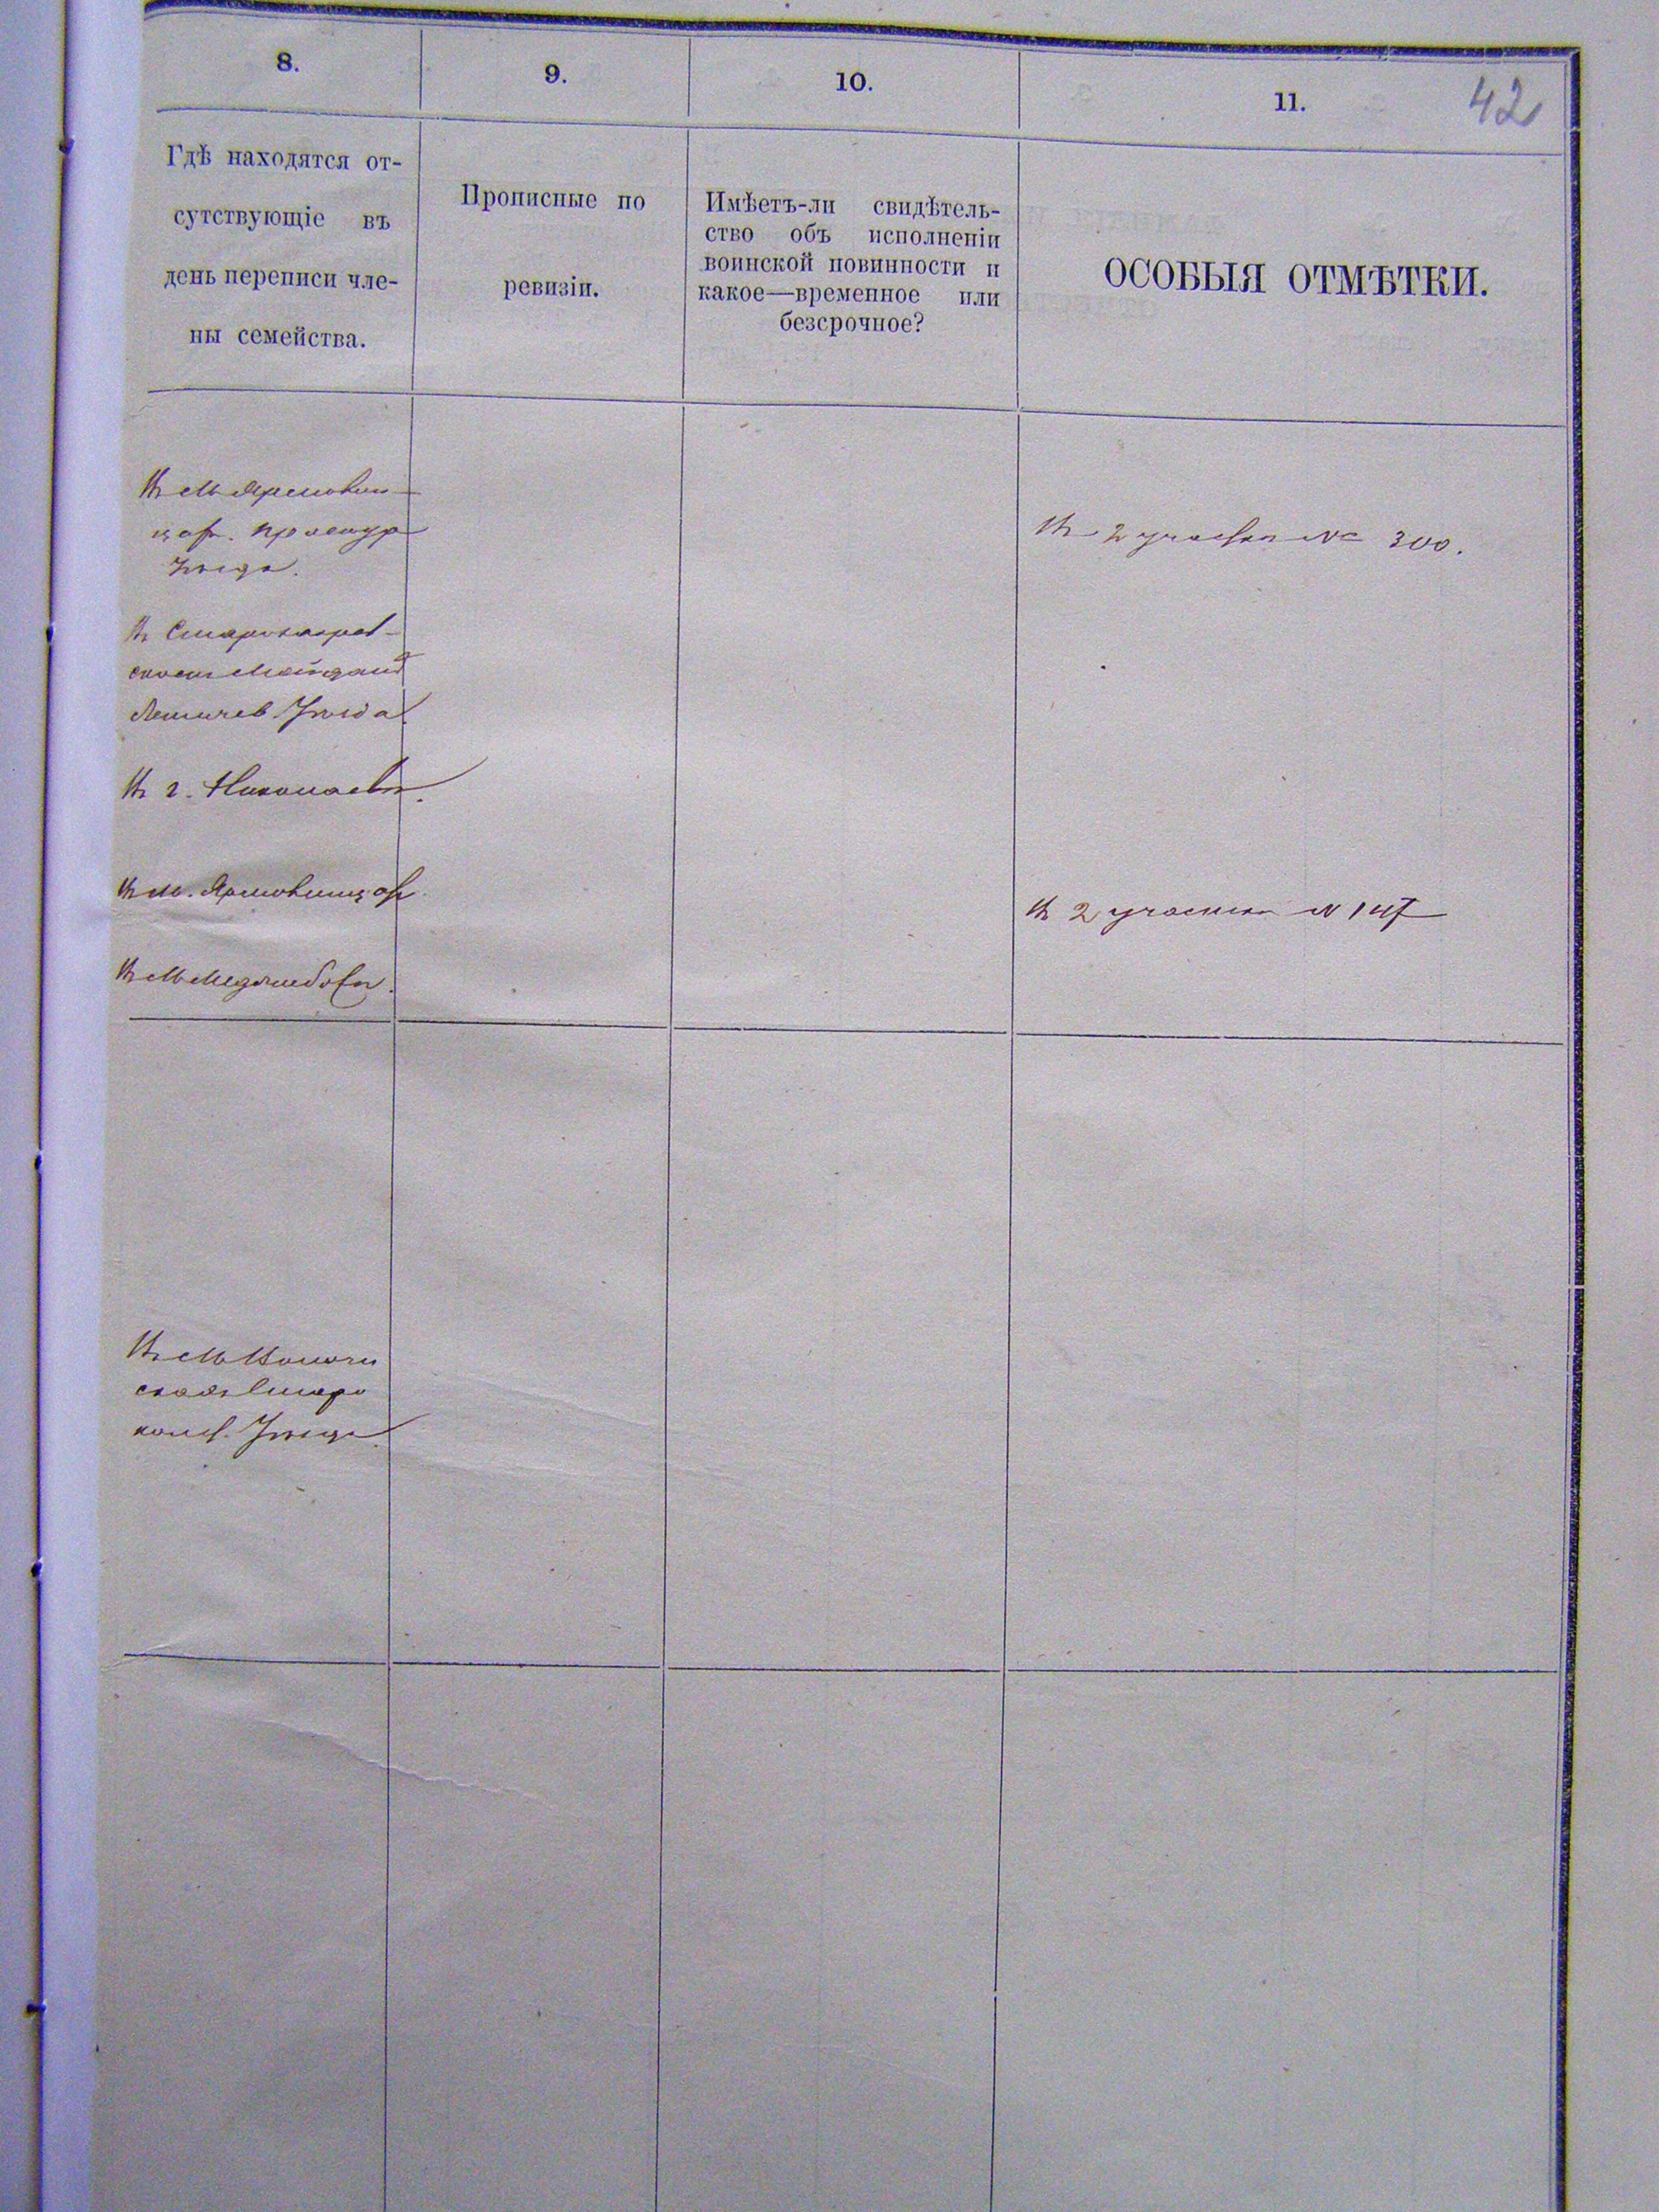 8.
9.
10.
11.
42
Гдѣ находятся от-
сутствующіе въ
день переписи чле-
ны семейства.
Прописные по
ревизіи.
Имѣетъ-ли свидѣтель-
ство объ исполненіи
воинской повинности и
какое—временное или
безсрочное?
ОСОБЫЯ ОТМѢТКИ.
Въ М Ярмолин-
цах. Проскур
Уѣзда.
Въ 2 участкѣ № 300.
Майданѣ
Летичев Уѣзда
Въ г. Николаевѣ.
Въ м. Ярмолинцах
Въ 2 участкѣ № 147
Въ М Меджибожѣ.
Въ М
Старо
конст. Уѣзда